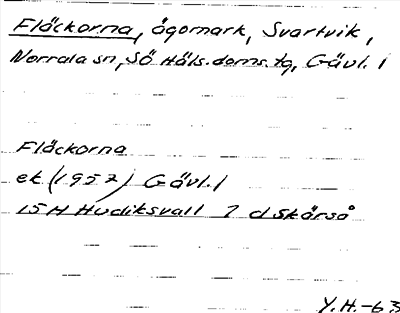 Fläckorna, ägomark, Svartvik,
Norrala sn, Sö Häls. doms. tg, Gävl. l
Fläckorna
ek (1957) Gävl. l
15H Hudiksvall 7 d Skärså
Y.H.-63